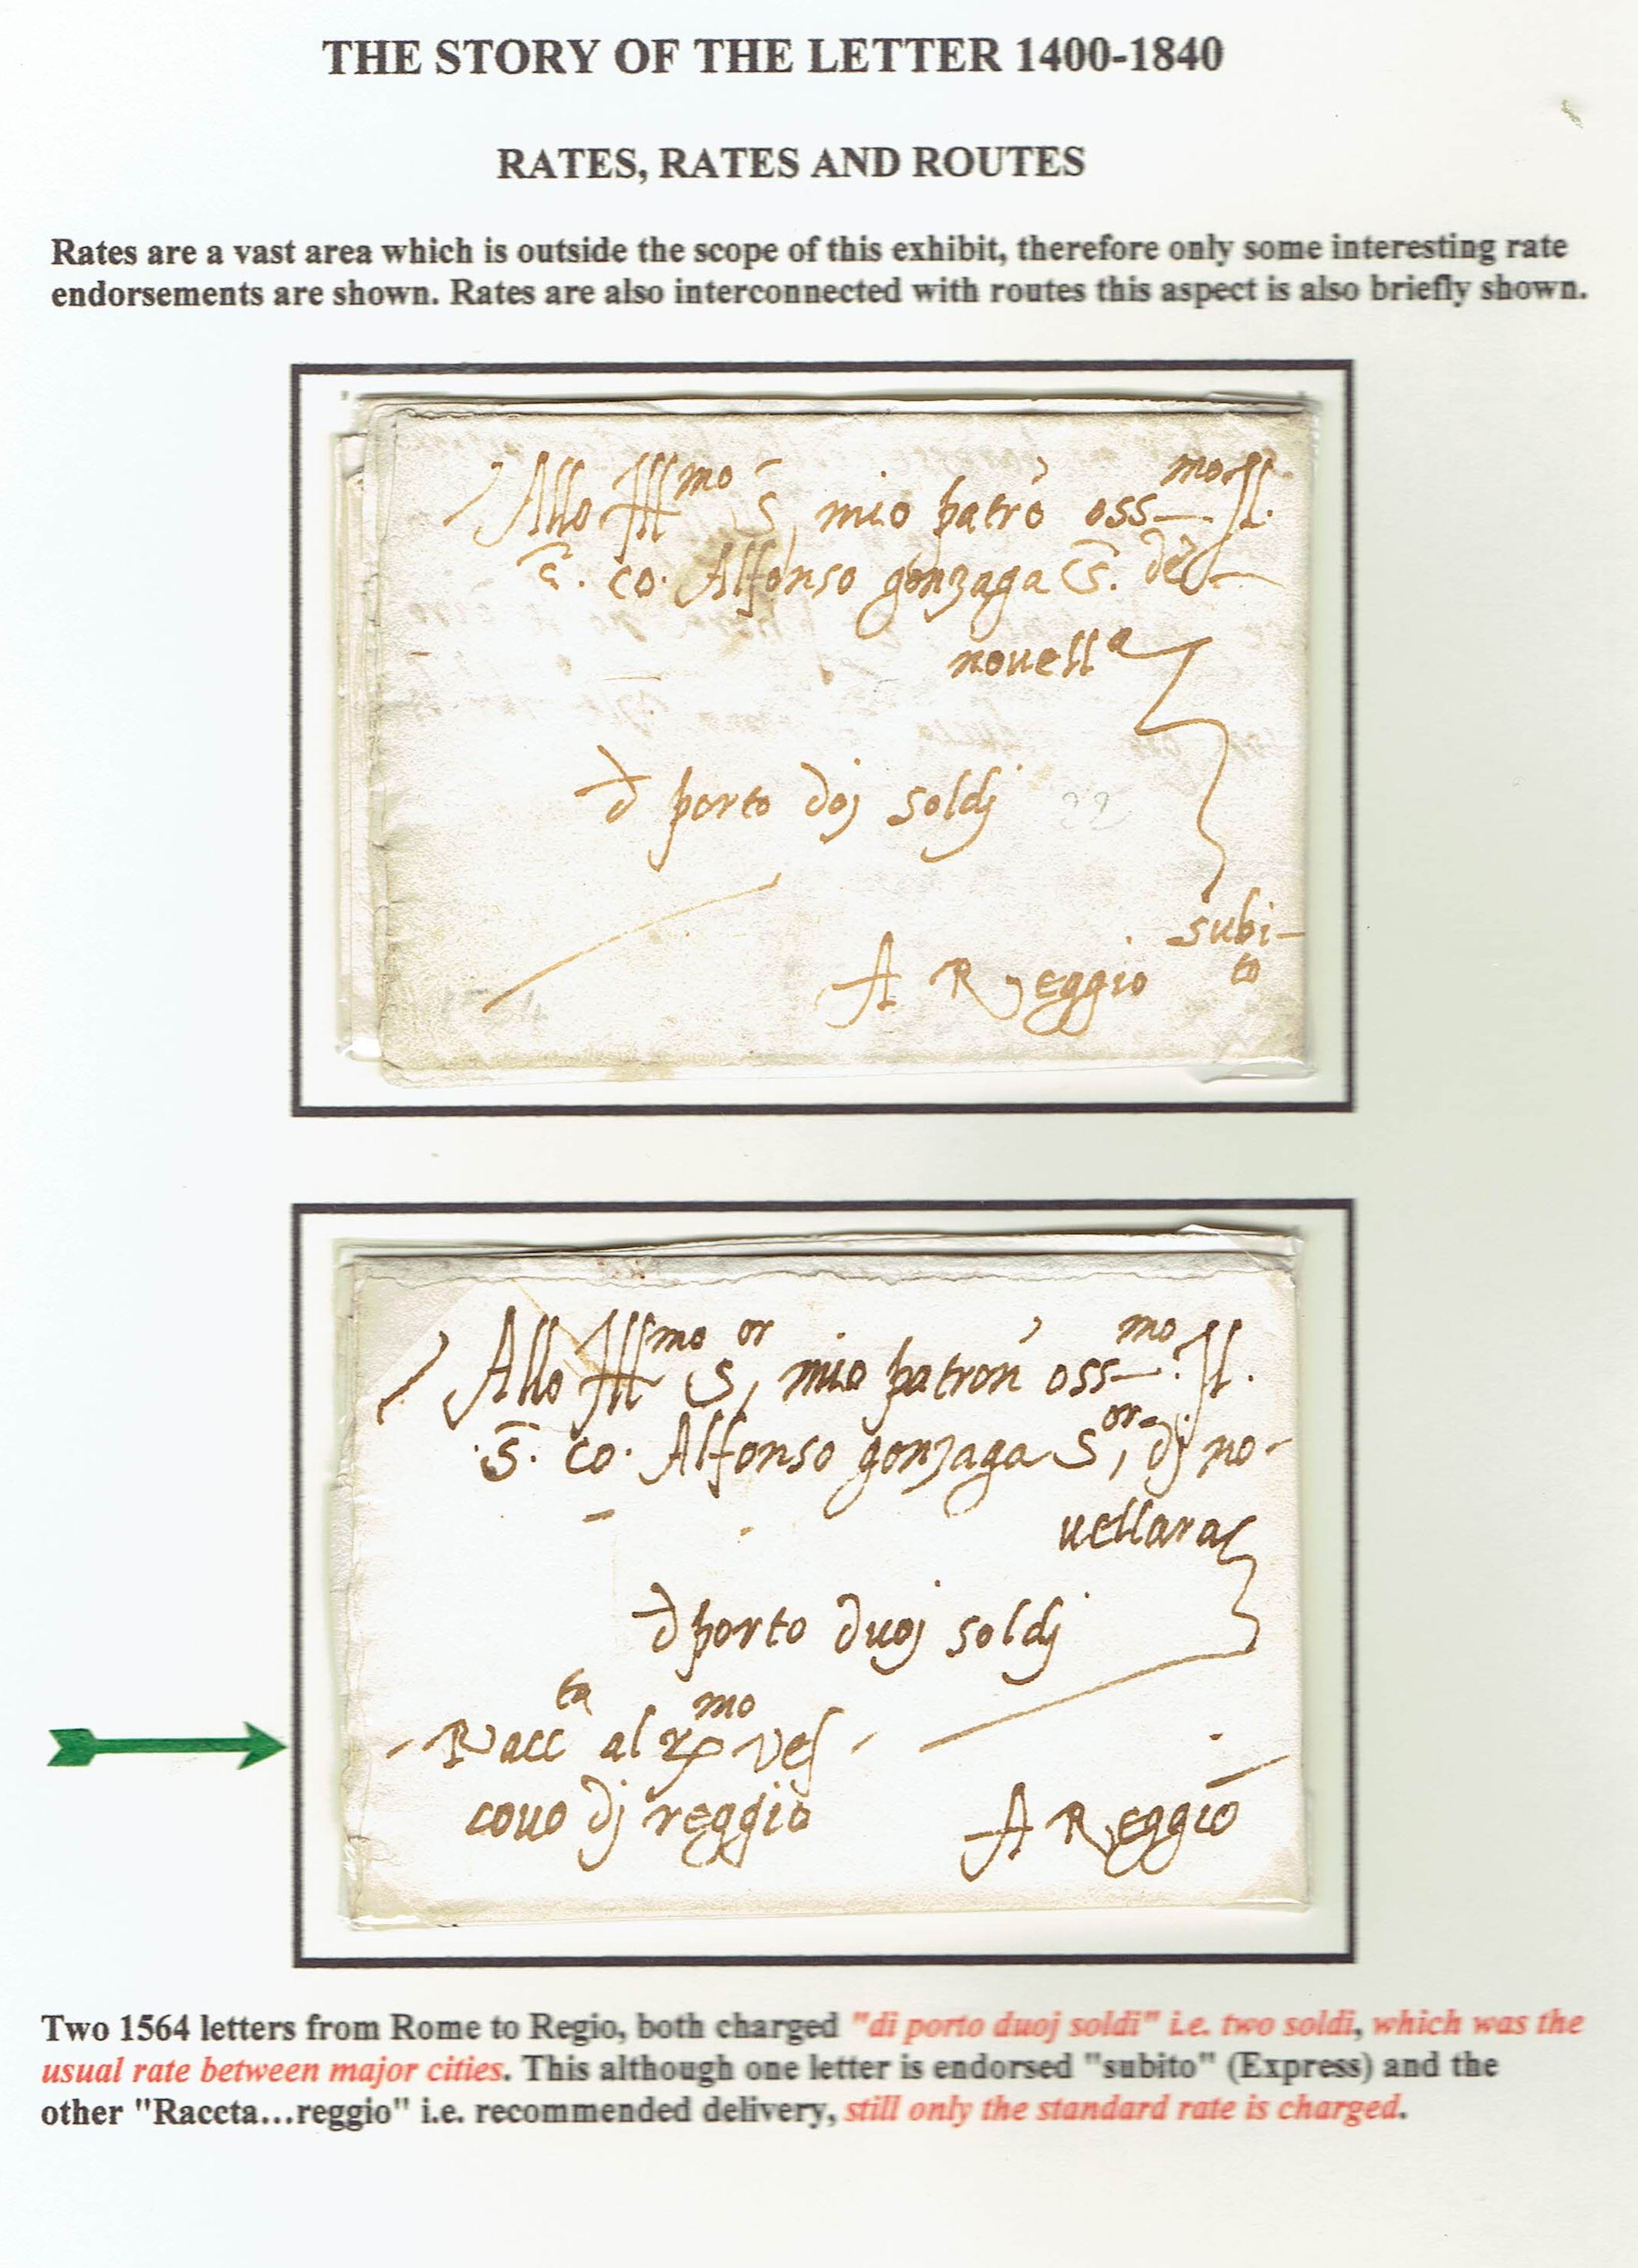 THE STORY OF THE LETTER 1400-1840
RATES, RATES AND ROUTES
Rates are a vast area which is outside the scope of this exhibit, therefore only some interesting rate
endorsements are shown. Rates are also interconnected with routes this aspect is also briefly shown.
Allo Ill mo S, mio patrō oss mo Il.
s̄. co. Alfonso gonzaga S̄. de
novella
d porto doj soldj
subi-
to
A Reggio
Allo Ill mo S or, mio patron oss mo. Il.
s̄. co. Alfonso gonzaga S or, dj no-
vellara
d porto duoj soldj
Racc ta al R mo Ves
covo dj reggio
A Reggio
Two 1564 letters from Rome to Regio, both charged "di porto duoj soldi" i.e. two soldi, which was the
usual rate between major cities. This although one letter is endorsed "subito" (Express) and the
other "Raccta...reggio" i.e. recommended delivery, still only the standard rate is charged.